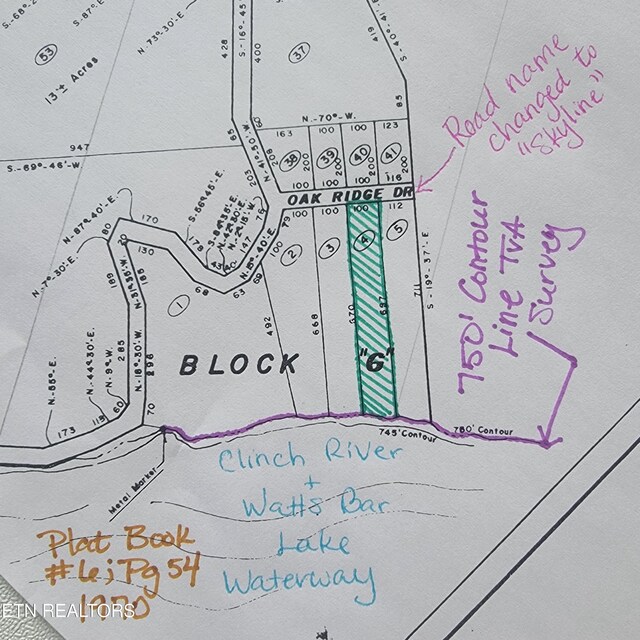 53
13 ± Acres
S.-87° E.
N.-73°30'-E.
428
S.-16°-45'
400
37
419
85
947
S.-69°-46'-W.
N.-70°-W.
163 100 100 123
38 39 40 41
208 200 200 200
100 100 100 116
65
N.-41°30'-W.
OAK RIDGE DR
100 112
Road name
changed to
"Skyline"
N.-87°40'-E.
170
80
130
N.-7°-30'-E.
189
185
178
147
76
79
100
N.-8°-40'E
68
63
69
1
2
3
4
5
492
668
670
697
711
S.-19°-37'E
BLOCK "G"
750' Contour
Line TVA
Survey
N.-55°-E.
N.-44°30'-E.
N.-9°-W.
285
298
N.-18°-30'-W.
173
113
60
70
745' Contour
760' Contour
Metal Marker
Clinch River
+
Watts Bar
Lake
Waterway
Plat Book
#6; Pg 54
1970
ETN REALTORS